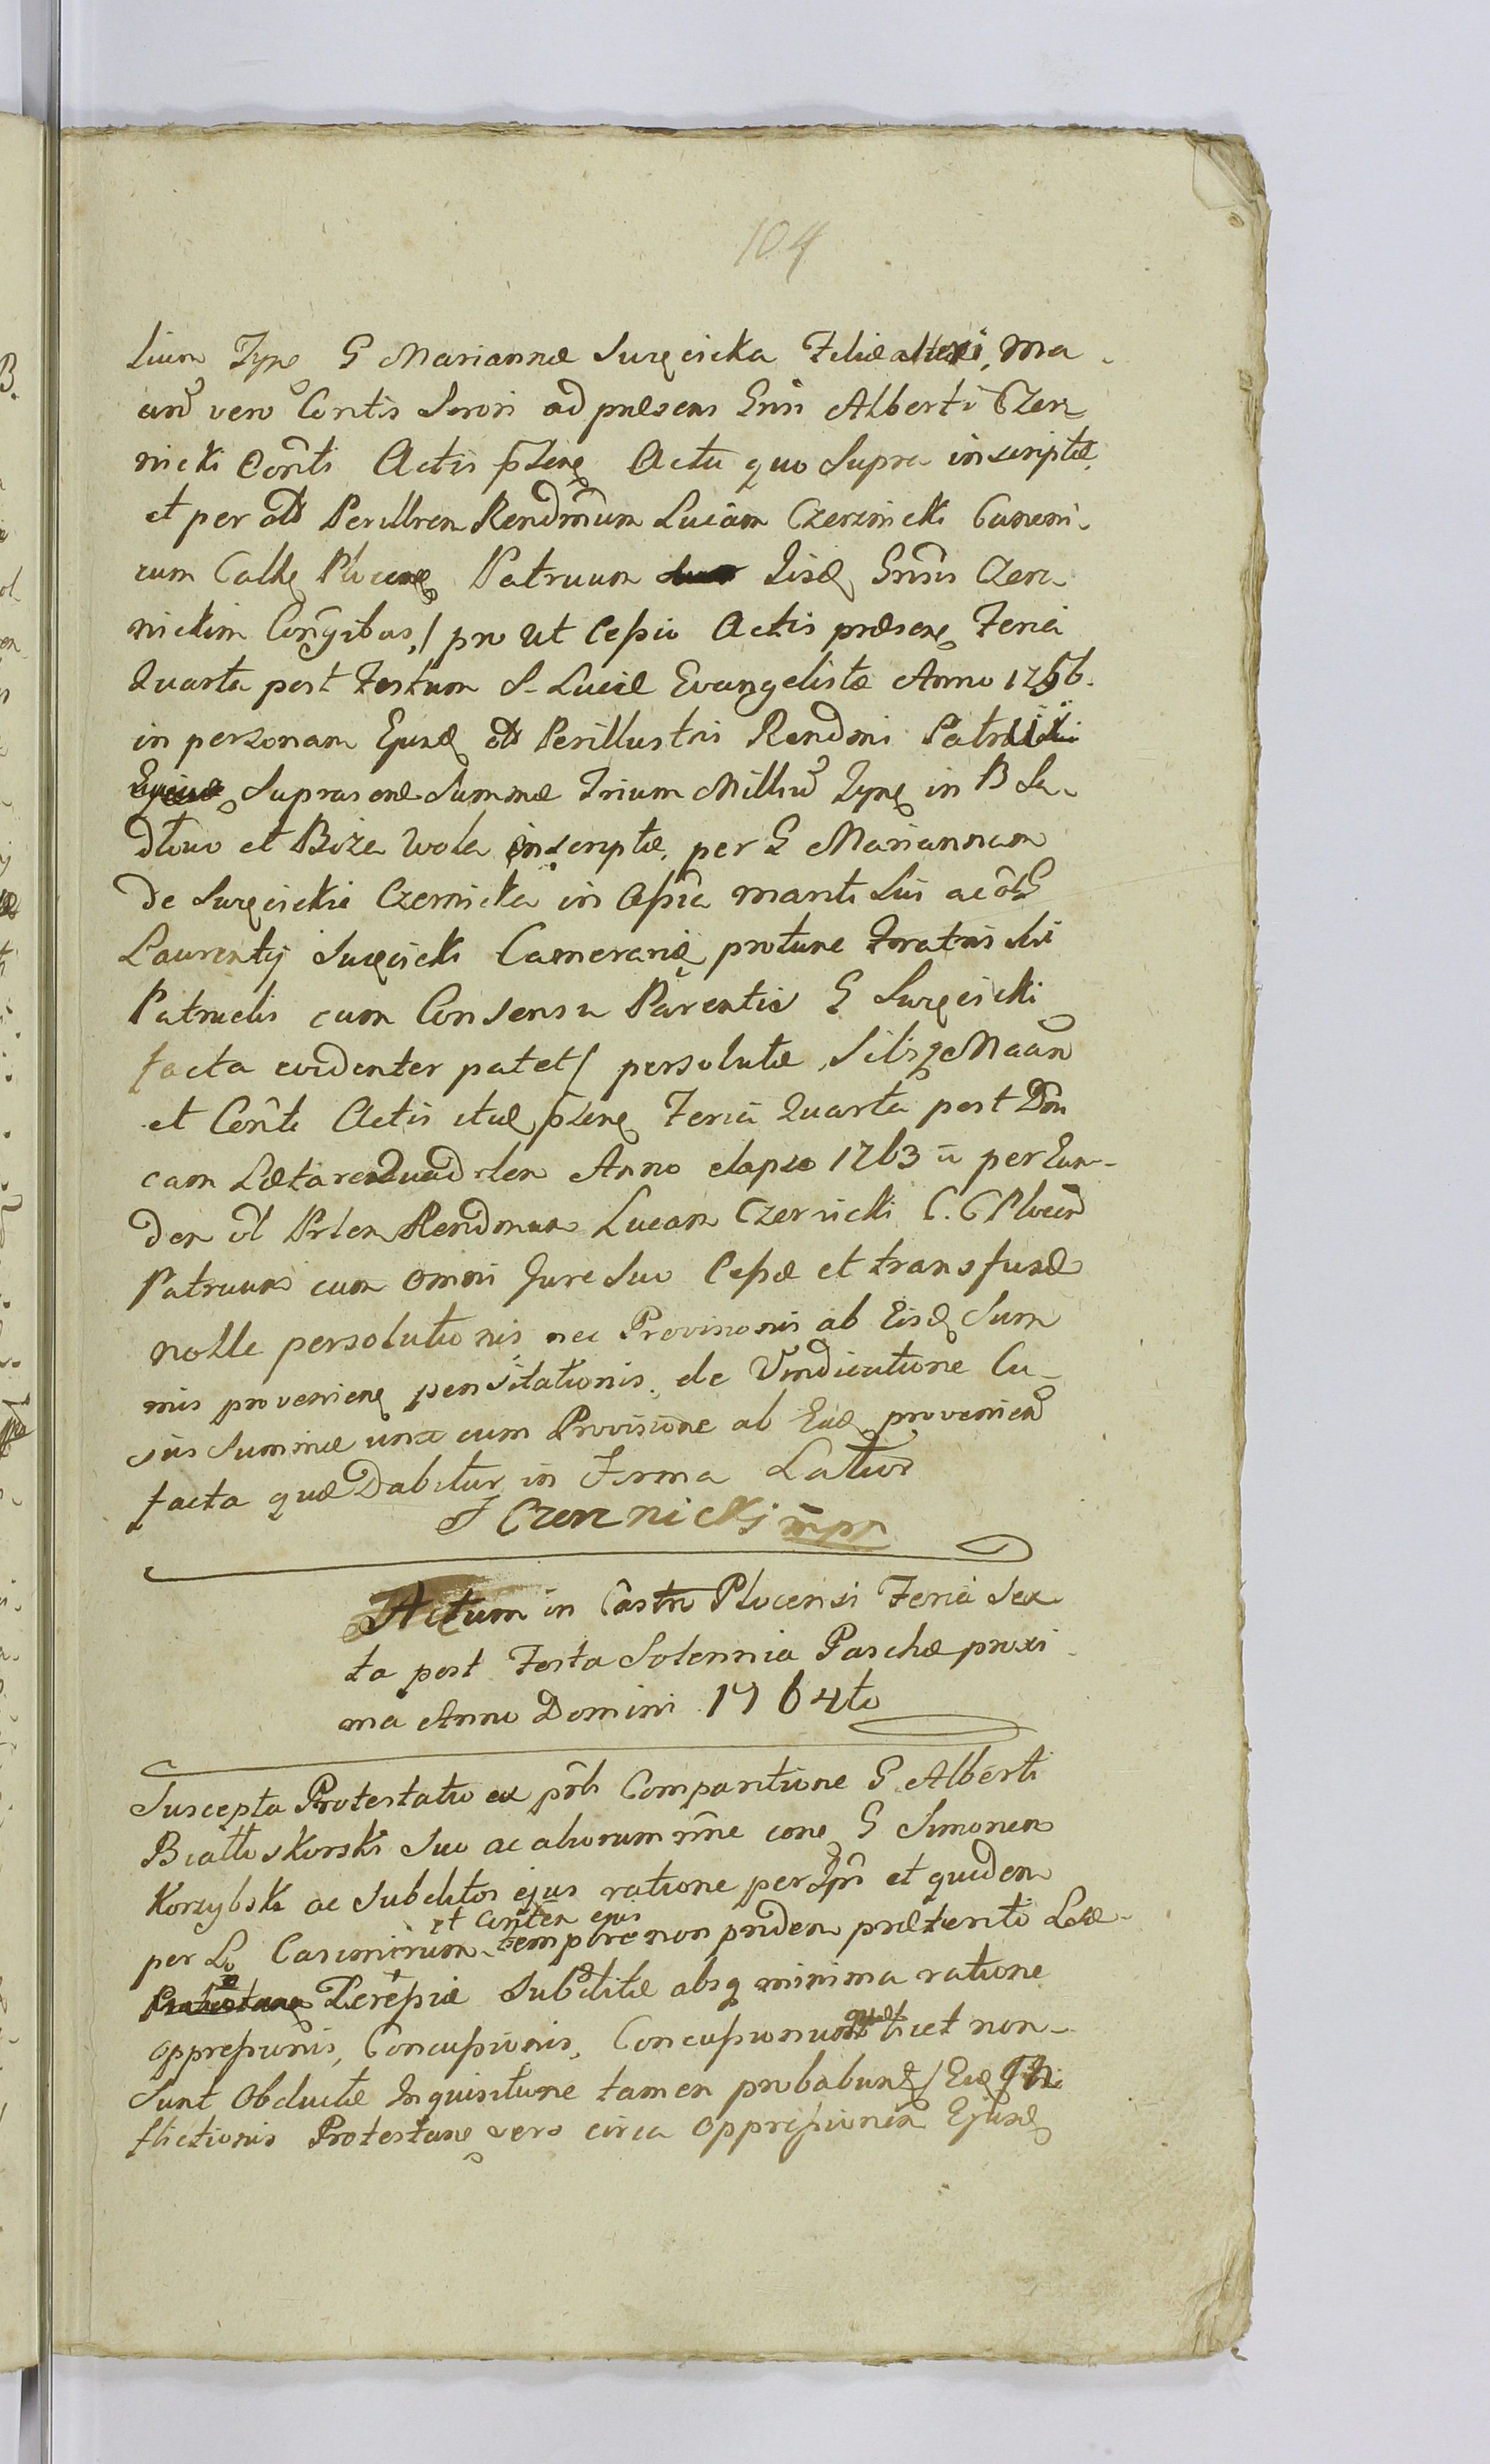 104
lium Zype G Mariannæ Suręcicka Filiæ alteri, ma
and vero Contis Sorori ad præsens Gnsi Alberti Czer
nicki Conti Actis pzene Actu quo Supra inscriptæ
et per olt Perillrem Rendmum Lucam Czernicki Canoni-
cum Cathe Plocene Patruum Iisd Gnsis Czer-
nickim Congibus / pro ut Cessio Actis præsene Feria
Quarta post Festum S. Lucæ Evangelistæ Anno 1756.
in personam Ejusd olt Perillustris Rendmi Patrui
Suprasenæ Summæ Trium Milliu Zyne in B Sa-
dłowo et Boża Wola inscriptæ, per G Mariannam
de Suręcickie Czernicka in Assia mariti Sui ac olt G
Laurentij Suręcicki Camerarie protunc Fratris Sui
Patruelis cum Consensu Parentis G Suręcicki
facta evidenter patet / persolutæ, Sibiq Maan
et Conti Actis itid pzene Feria Quarta post Dni
cam Lætare Quadrlem Anno elapso 1763 u per Eun-
dem olt Prlem Rendmum Lucam Czernicki C. C Plocen
Patruum cum omni Jure Suo Cessæ et transfusæ
nolle persolutionis nec Provisionis ab Eisd Sum
mis proveniene pensitationis. de Vindicatione Cu-
jus Summæ una cum Provisione ab Ead provenien
facta quæ Dabitur in Forma Latiori
J Czernicki mpr
Actum in Castro Plocensi Feria Sex
ta post Festa Solennia Paschæ proxi
ma Anno Domini 1764to
Suscepta Protestatio ex pnti Comparitione G Alberti
Białłoskorski Suo ac aliorum nne cone G Simonem
Korzybski ac Subditos ejus ratione per Ips et quidem
et ejus
per L Casimirum tempore non pridem præterito
subditæ absq minima ratione
oppressionis, Concussionis, Concussionum licet non-
Sunt Obductæ Inquisitione tamen probabune / Ead
flictionis Protestane vero circa oppressionem Ejusd